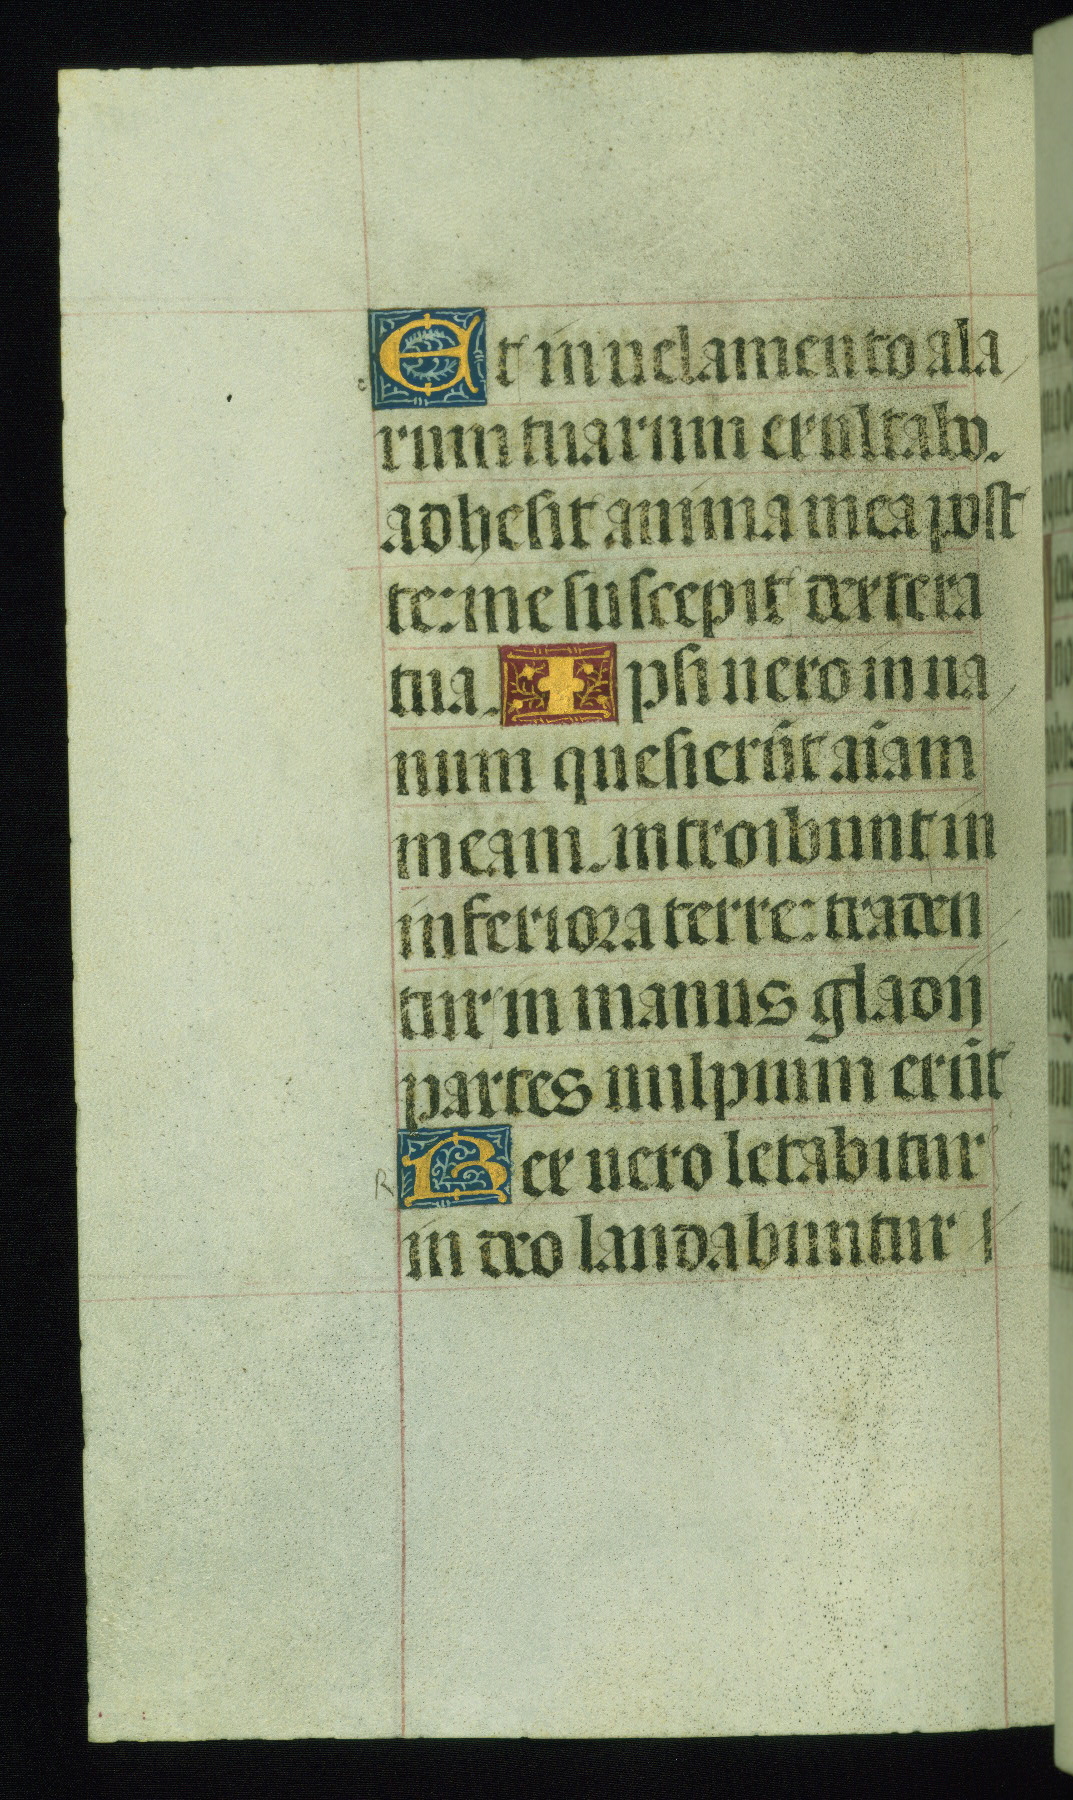 Et in uelamento ala
rum tuarum exultabo.
adhesit anima mea post
te: me suscepit dextera
tua. Ipsi uero in ua
num quesierūt aīam
meam. introibunt in
inferiora terre: traden
tur in manus gladij
partes uulpium erūt
Rex uero letabitur
in deo laudabuntur